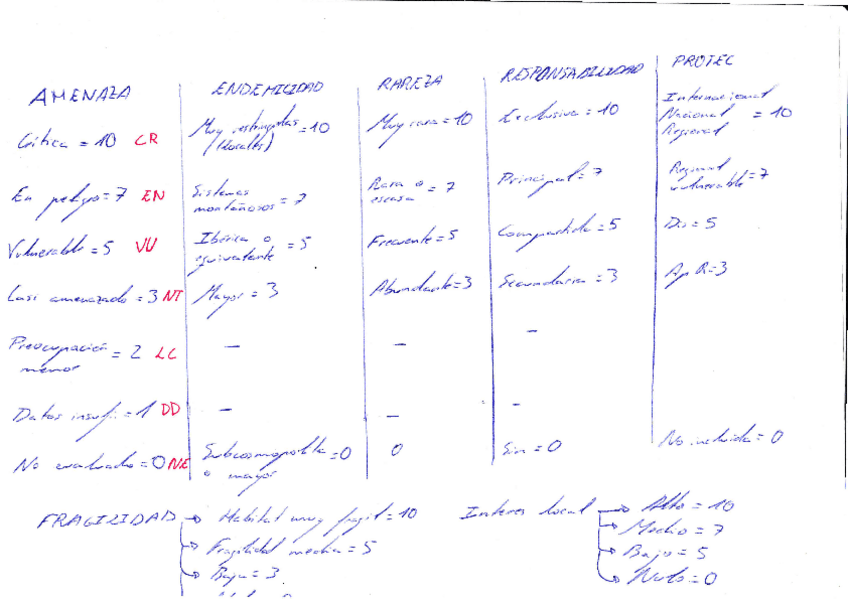 AMENAZA ENDEMICIDAD RAREZA RESPONSABILIDAD PROTEC
Crítica = 10 CR
Muy restringidas = 10
(locales)
Muy rara = 10
Exclusiva = 10
Internacional
Nacional = 10
Regional
En peligro = 7 EN
Sistemas
montañosos = 7
Rara o
escasa = 7
Principal = 7
Regional
vulnerable = 7
Vulnerable = 5 VU
Ibérica o
equivalente = 5
Frecuente = 5
Compartida = 5
= 5
Casi amenazado = 3 NT
Mayor = 3
Abundante = 3
Secundaria = 3
Ap R = 3
Preocupación
menor = 2 LC
—
—
—
Datos insufi. = 1 DD
—
—
—
No evaluado = 0 NE
Subcosmopolita = 0
o mayor
0
Sin = 0
No incluida = 0
FRAGILIDAD → Habitat muy fragil = 10
→ Fragilidad media = 5
→ Baja = 3
Interes local → Alto = 10
→ Medio = 7
→ Bajo = 5
→ Nulo = 0